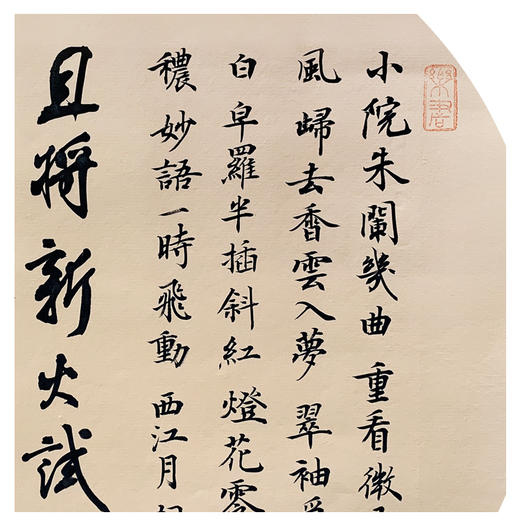 小院朱闌幾曲重看微
風歸去香雲入夢翠袖
白皁羅半插斜紅燈花零
穠妙語一時飛動西江月
且將新火試